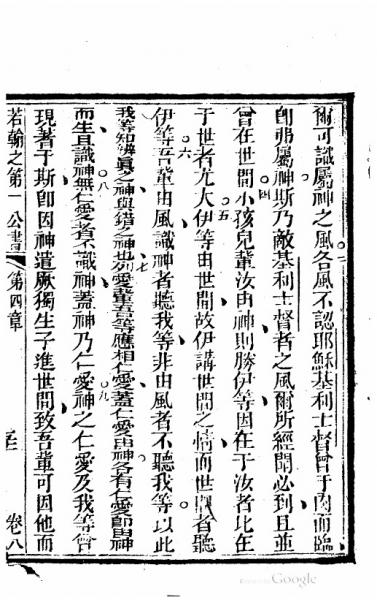 爾可識屬神之風各風不認耶穌基利士督曾于肉而臨
卽弗屬神斯乃敵基利士督者之風爾所經聞必到且並
曾在世間小孩兒輩汝由神則勝伊等因在于汝者比在
于世者尤大伊等由世間故伊講世間之情而世間者聽
伊等吾輩由風識神者聽我等非由風者不聽我等以此
我等知辨眞之神與錯之神也列愛輩吾等應相仁愛蓋仁愛由神各有仁愛卽由神
而生且識神無仁愛者不識神蓋神乃仁愛神之仁愛及我等曾
現著于斯卽因神遣厥獨生子進世間致吾輩可因他而
若翰之第一公書 第四章 卷八
二
四
五
六
七
八
九
Google